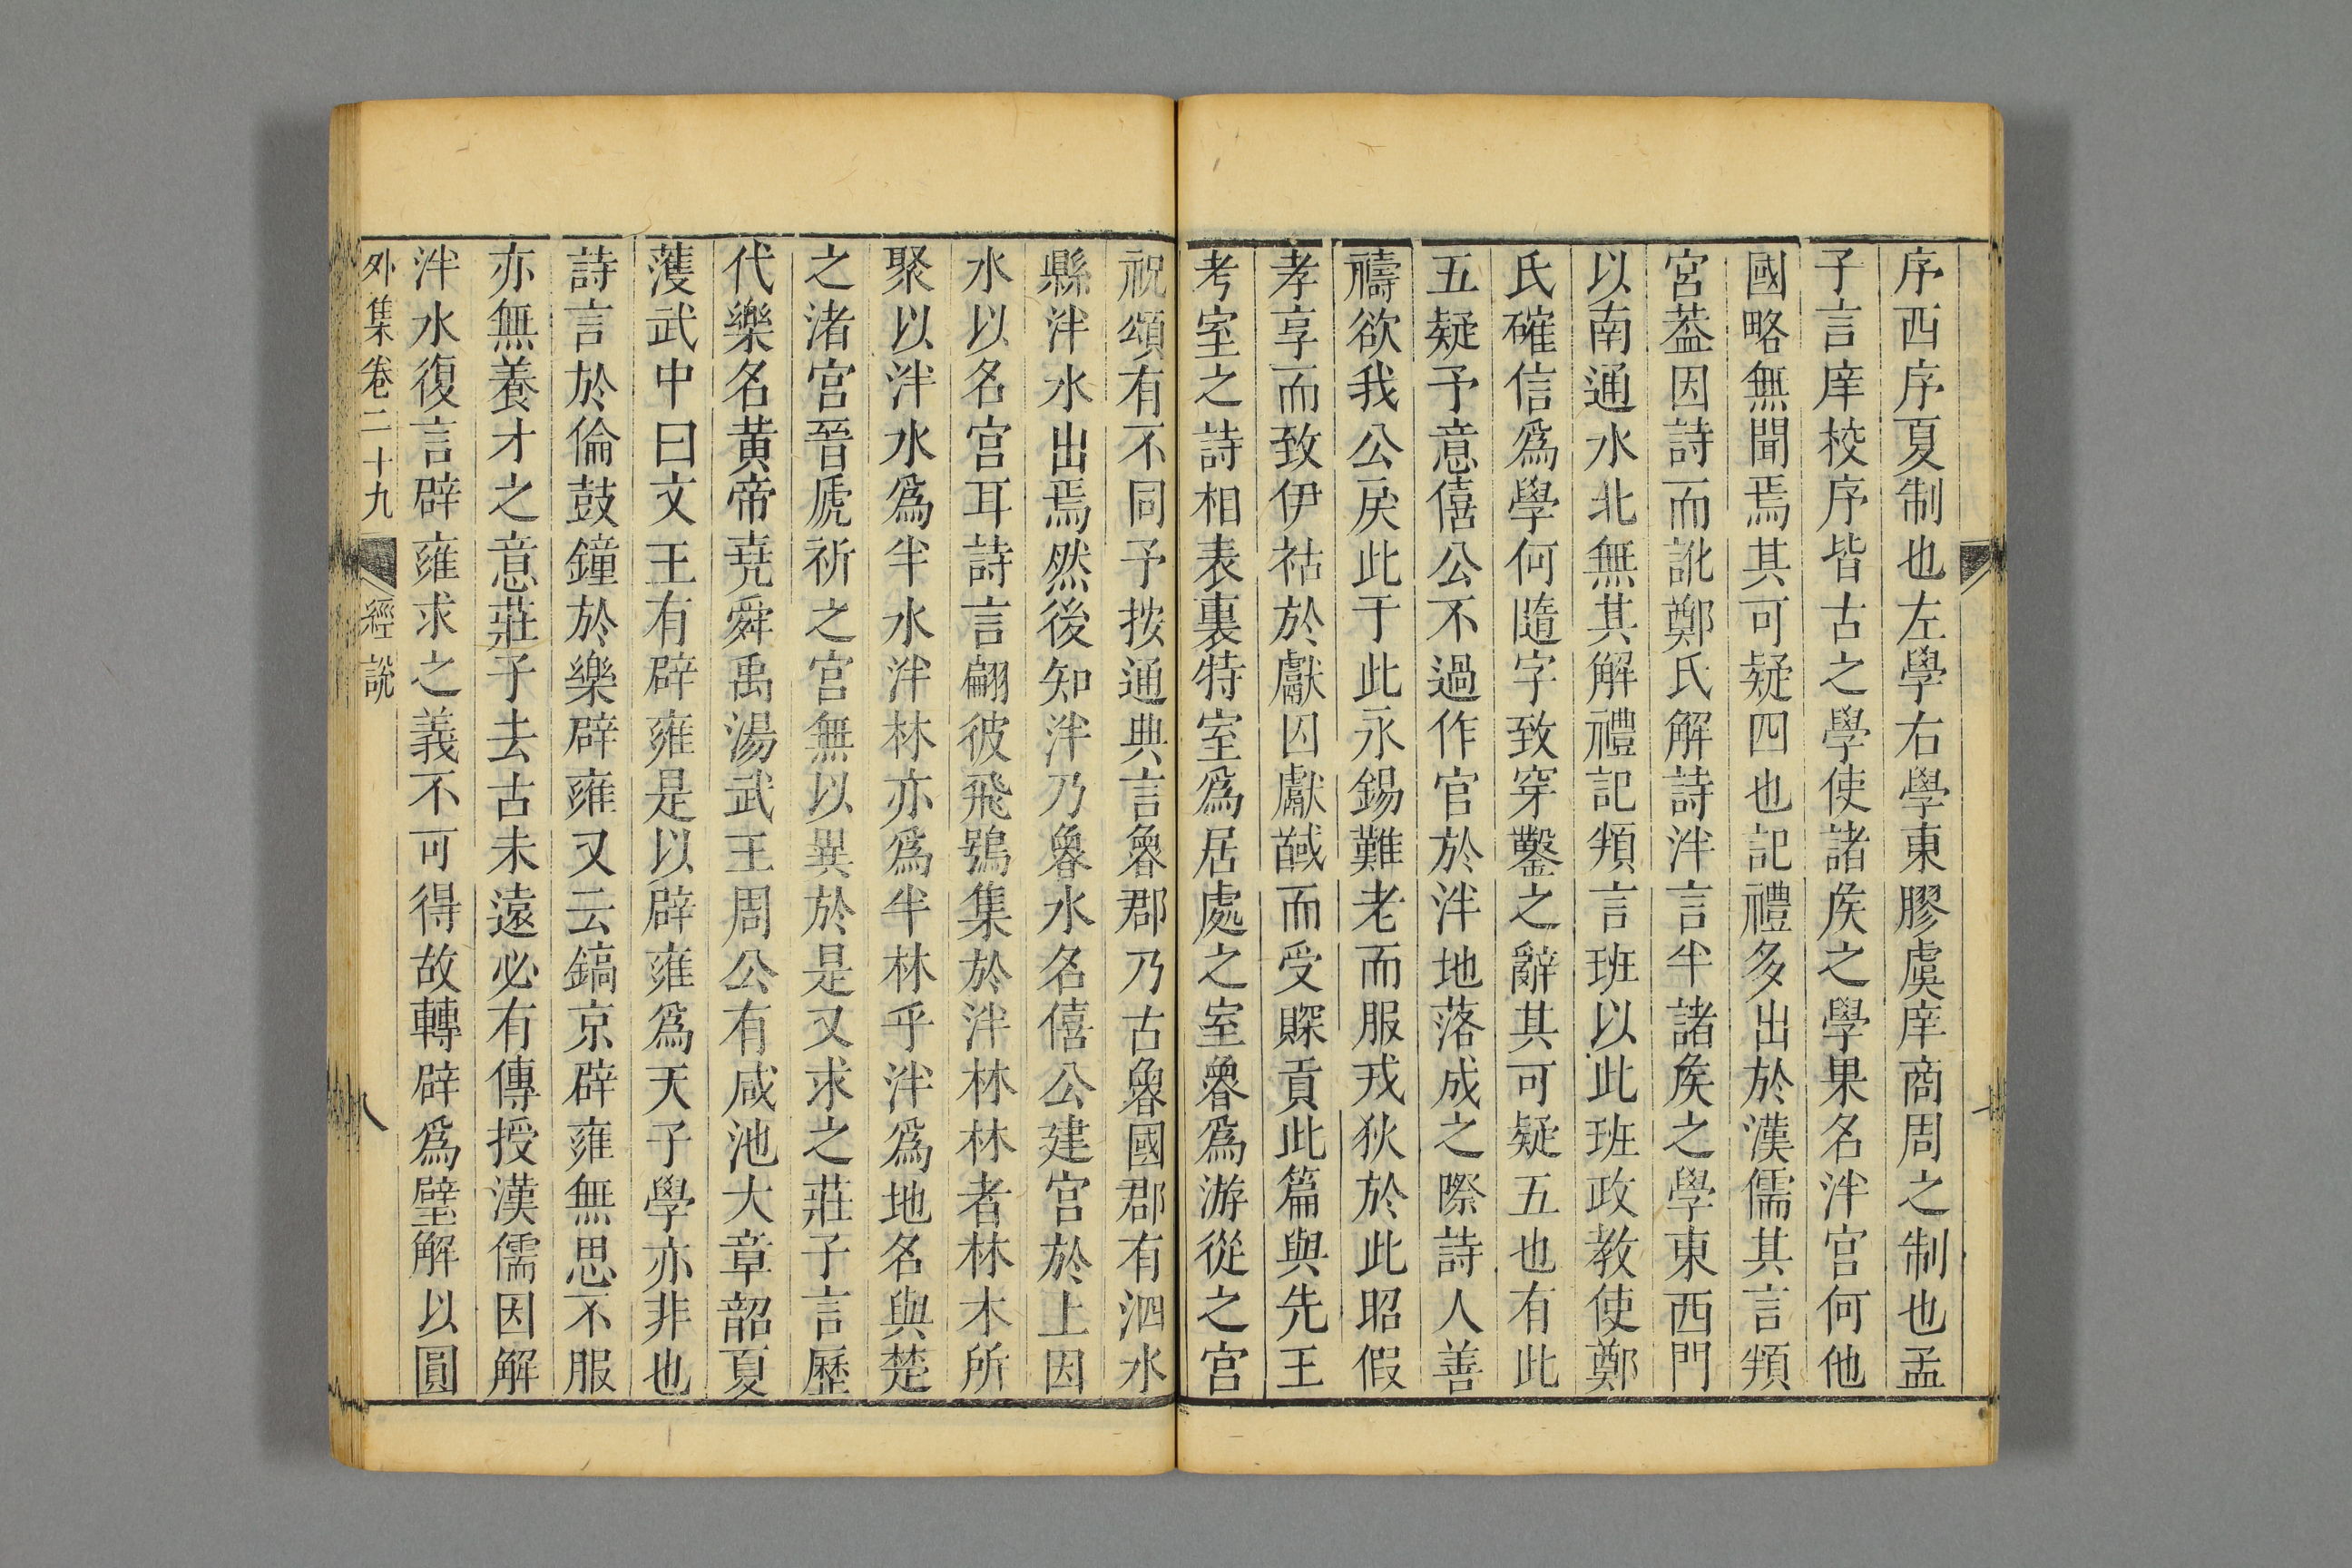 序西序夏制也左學右學東膠虞庠商周之制也孟
子言庠校序皆古之學使諸矦之學果名泮宮何他
國略無聞焉其可疑四也記禮多出於漢儒其言頖
宮葢因詩而訛鄭氏解詩泮言半諸矦之學東西門
以南通水北無其解禮記頖言班以此班政教使鄭
氏確信爲學何隨字致穿鑿之辭其可疑五也有此
五疑予意僖公不過作宮於泮地落成之際詩人善
禱欲我公戾此于此永錫難老而服戎狄於此昭假
孝享而致伊祜於獻囚獻馘而受賝貢此篇與先王
考室之詩相表裏特室爲居處之室魯爲游從之宮
祝頌有不同予按通典言魯郡乃古魯國郡有泗水
縣泮水出焉然後知泮乃魯水名僖公建宮於上因
水以名宮耳詩言翩彼飛鴞集於泮林林者林木所
聚以泮水爲半水泮林亦爲半林乎泮爲地名與楚
之渚宮晉虒祈之宮無以異於是又求之莊子言歷
代樂名黄帝堯舜禹湯武王周公有咸池大章韶夏
濩武中曰文王有辟雍是以辟雍爲天子學亦非也
詩言於倫鼓鐘於樂辟雍又云鎬京辟雍無思不服
亦無養才之意莊子去古未遠必有傳授漢儒因解
泮水復言辟雍求之義不可得故轉辟爲璧解以圓
外集卷二十九 經說 八